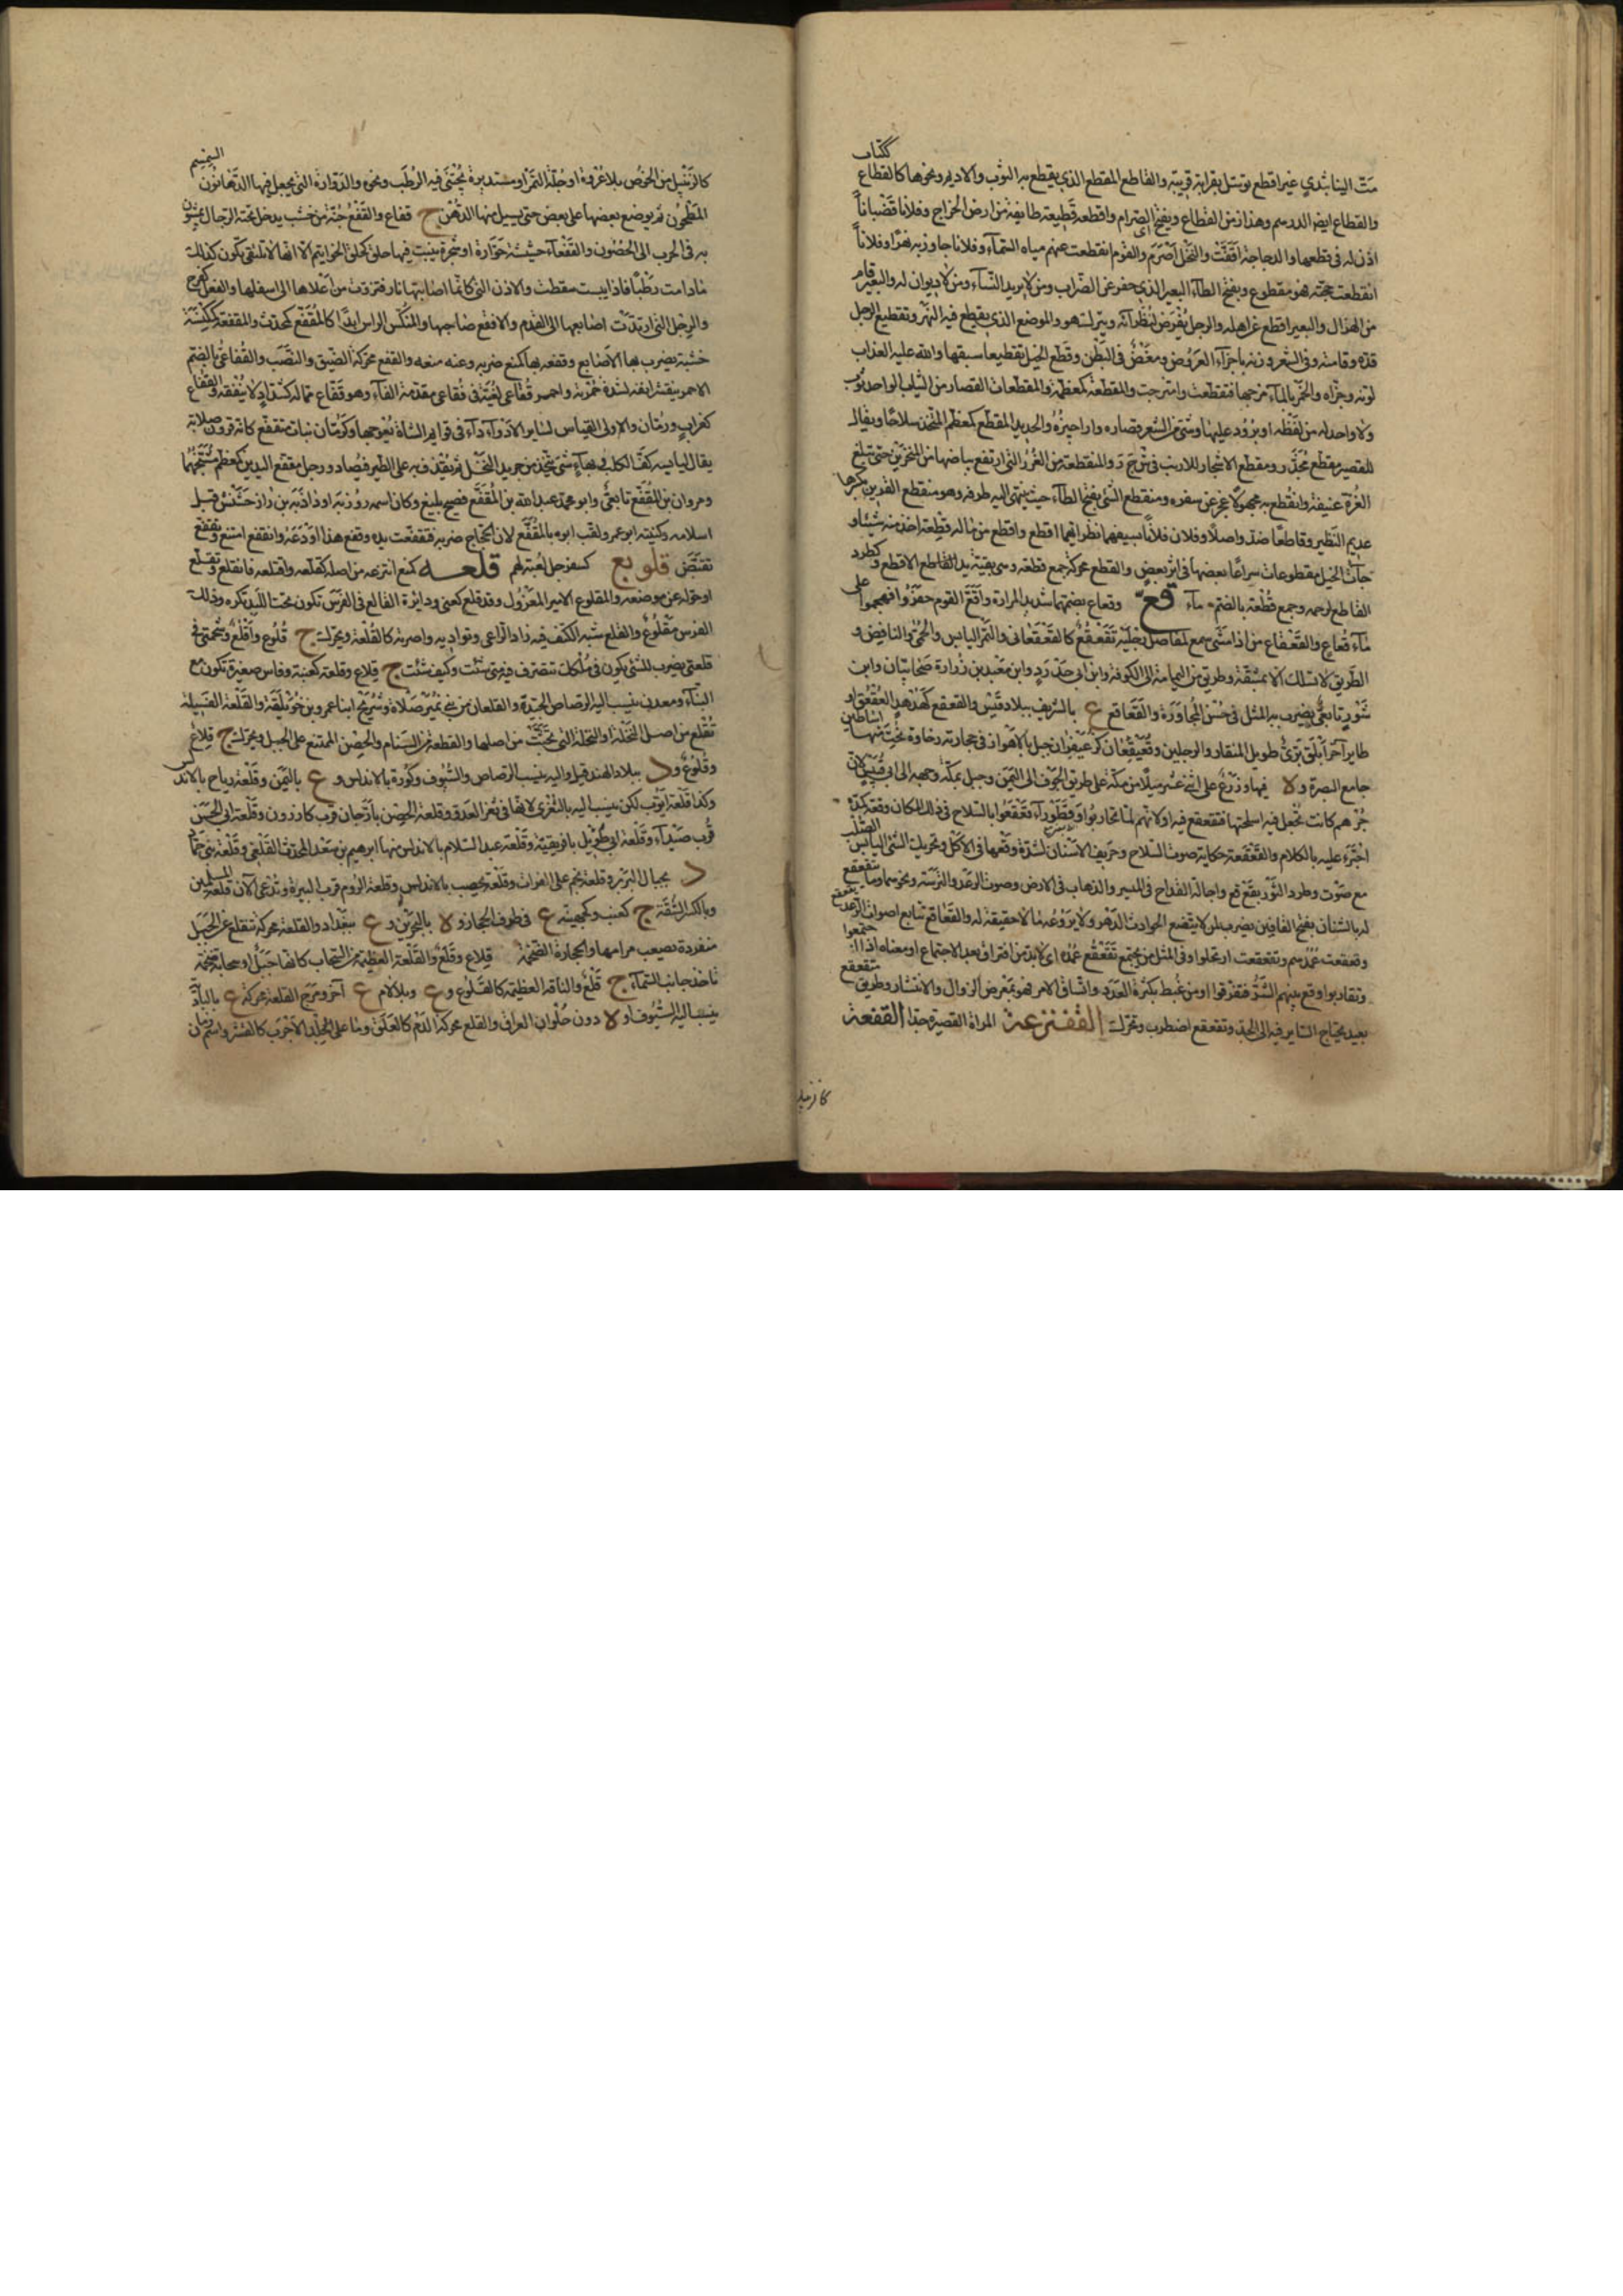 كتاب
مت الينا بثدي غير اقطع توسل بقرابة قريبة والقاطع المقطع الذي يقطع به الثوب والاديم ونحوها كالقطاع
والقطاع ايضا الدرهم وهذا زمن القطاع ويفتح اى الصرام واقطعه قطيعة طايفة من ارض الخراج وفلانا قضبانا
اذن له في قطعها والدجاجة اقفت والنخل اصرم والقوم انقطعت عنهم مياه السماء وفلانا جاوز به نهرا وفلانا
انقطعت حجته فهو مقطوع وبفتح الطاء البعير الذي جفر عن الضراب ومن لا يريد النساء ومن لا ديوان له والبعير قام
من الهزال والبعير اقطع عن اهله والرجل يفرض لنظرائه ويترك هو والموضع الذي يقطع فيه النهر وتقطيع الرجل
قده وقامته وفي الشعر وزنه باجزاء العروض ومغص في البطن وقطع الخيل تقطيعا سبقها والله عليه العذاب
لونه وجزاه والخمر بالماء مزجها فتقطعت وامتزجت والمقطعة كمعظمة والمقطعات القصار من الثياب الواحد ثوب
ولا واحد له من لفظه او برود عليها وشي من الشعر قصاره واراجيزه والحديد المقطع كمعظم المتخذ سلاحا ويقال
للقصير مقطع مجذر ومقطع الاسحار للارنب في ح ر د والمتقطعة من الغرر التي ارتفع بياضها من المنخرين حتى تبلغ
الغرة عنيفة وانقطع به مجهولا عجز عن سفره ومنقطع الشي بفتح الطاء حيث ينتهي اليه طرفه وهو منقطع القرين بكسرها
عديم النظير وقاطعا ضد واصلا وفلان فلانا بسيفهما نظرا ايهما اقطع واقطع من ماله قطعة اخذ منه شيئا و
جاءت الخيل مقطوطعات سراعا بعضها في اثر بعض والقطع محركة جمع قطعة وهي بقية يد الاقطع و كصرد
القاطع لرحمه وجمع قطعة بالضم ماء قع وقعاع بضمهما شديد المرارة واقع القوم حفروا فهجموا على
ماء قعاع والقعقاع من اذا مشى سمع لمفاصل رجليه تقعقع كالقعقعاني والتمر اليابس والحمى النافض و
الطريق لا تسلك الا بمشقة وطريق من اليمامة الى الكوفة وابن ابي حدرد وابن معبد بن زرارة صحابيان وابن
شور تابعي يضرب به المثل في حسن المجاورة والقعاقع ع بالشريف ببلاد قيس والقعقع كهدهد العقعق او
طاير اخر ابلق بري طويل المنقار والرجلين وقعيقعان كزعيفران جبل بالاهواز في حجارته رخاوة نحتت منها اساطين
جامع البصرة و لا فيها وزرع على اثني عشر ميلا من مكة على طريق الحوف الى اليمن وجبل بمكة وجهه الى ابي قبيس لان
جرهم كانت تجعل فيه اسلحتها فتقعقع فيه او لانهم لما تحاربوا وقطوراء تقعقعوا بالسلاح في ذلك المكان وقعه كمده
اجترء عليه بالكلام والقعقعة حكاية صوت السلاح وحريف الاسنان لشدة وقعها في الاكل وتحريك الشي اليابس الصلب
مع صوت وطرد الثور بقع قع واجالة القداح في الميسر والذهاب في الارض وصوت الرعد والترسة ونحوهما وما يتقعقع
له بالشنان بفتح القافين يضرب لمن لا يتضع لحوادث الدهر ولا يروعه ما لا حقيقة له والقعاقع تتابع اصوات الرعد
وقعقعت عمدهم وتقعقعت ارتحلوا وفي المثل من يجتمع تتقعقع عمده اى لا بد من افتراق بعد الاجتماع او معناه اذا اجتمعوا
وتقاربوا وقع بينهم الشر فتفرقوا او من غبط بكثرة العدد واتساق الامر فهو بمعرض الزوال والانتشار وطريق متقعقع
بعيد يحتاج السائر فيه الى الجد وتقعقع اضطرب وتحرك القفنزعة المراة القصيرة جدا القفعة
كالزنبيل
كالزنبيل من الخوص بلا عروة او جلة التمر او مستديرة يجتنى فيه الرطب ونحوه والدوارة التي يجعل فيها الدهانون السمسم
المطحون ثم يوضع بعضها على بعض حتى يسيل منها الدهن ج قفاع والقفع جنة من خشب يدخل تحته الرجال يمشون
به في الحرب الى الحصون والقفعاء حشيشة خوارة او شجرة ينبت فيها حلق كحلق الخواتيم الا انها لا تلتقى تكون كذلك
مادامت رطبا فاذا يبست سقطت والاذن التي كانما اصابتها نار فتزوت من اعلاها الى اسفلها والفعل كفرح
والرجل التي ارتدت اصابعها الى القدم والاقفع صاحبها والمنكس الراس ابدا كالمقفع كمحدث والمقفعة كمكنسة
خشبة يضرب بها الاصابع وقفعه بها كمنع ضربه وعنه منعه والقفع محركة الضيق والنصب والقفاعي بالضم
الاحمر يتقشر انفه لشدة حمرته واحمر قفاعي لغية في فقاعي مقدمة الفاء وهو قفاع لماله كشداد لا ينفقه والقفاع
كغراب ورمان والاولى القياس لسائر الادواء داء في قوائم الشاة يعوجها وكرمان نبات متقفع كانه قرون صلابة
يقال ليابسه كف الكلب وبهاء شي يتخذ من جريد النخل ثم يغدف به على الطير فيصاد ورجل مقفع اليدين كمعظم متشنجهما
ومروان بن المقفع تابعي وابو محمد عبد الله بن المقفع فصيح بليغ وكان اسمه روزبه او داذبه بن داذ جشنس قبل
اسلامه وكنيته ابو عمر ولقب ابوه بالمقفع لان الحجاج ضربه فتقفعت يده وقفع هذا اوذعه وانقفع امتنع وتقفع
تقبض قلوبع كسفرجل لعبة لهم قلعه كمنع انتزعه من اصله كقلعه واقتلعه فانقلع وتقلع
او حوله عن موضعه والمقلوع الامير المعزول وقد قلع كعني ودائرة القالع في الفرس تكون تحت اللبد تكره وذلك
الفرس مقلوع والقلع شبه الكنف فيه زاد الراعي وتواديه واصرته كالقلعة ويحرك ج قلوع واقلع وشحمتي في
قلعتي يضرب للشي يكون في ملكك تتصرف فيه متى شئت وكيف شئت ج قلاع وقلعة كعنبة وفاس صغيرة تكون مع
البناء ومعدن ينسب اليه الرصاص الجيد والقلعان من بني نمير صلاءة وشريح ابنا عمرو بن خويلقة والقلعة الفسيلة
تقلع من اصل النخلة او النخلة التي تجتث من اصلها والقطعة من السنام والحصن الممتنع على الجبل ويحرك ج قلاع
وقلوع و د ببلاد الهند قيل واليه ينسب الرصاص والسيوف وكورة بالاندلس و ع باليمن وقلعة رباح بالاندلس
وكذا قلعة ايوب لكن ينسب اليه بالثغري لانها في ثغر العدو وقلعة الحصن بارجان قرب كازرون وقلعة ابى الحسن
قرب صيداء وقلعة ابي طويل بافريقية وقلعة عبد السلام بالاندلس منها ابرهيم بن سعد المحدث القلعي وقلعة بني حماد
د بجبال البربر وقلعة نجم على الفرات وقلعة يحصب بالاندلس وقلعة الروم قرب البيرة وتدعى الان قلعة المسلمين
وبالكسر الشقة ج كعنب وكجهينة ع في طرف الحجاز و لا بالبحرين و ع ببغداد والقلعة محركة تنقلع عن الجبل
منفردة يصعب مرامها والحجارة الضخمة قلاع وقلع والقلعة العظيمة من السحاب كانها جبل او سحابة ضخمة
تاخذ جانب السماء ج قلع والناقة العظيمة كالقلوع و ع وبلا لام ع اخر ومرج القلعة محركة ع بالبادية
ينسب اليه السيوف او لا دون حلوان العراق والقلع محركة الدم كالعلق وما على الجلد الاجرب كالقشر واسم زمان